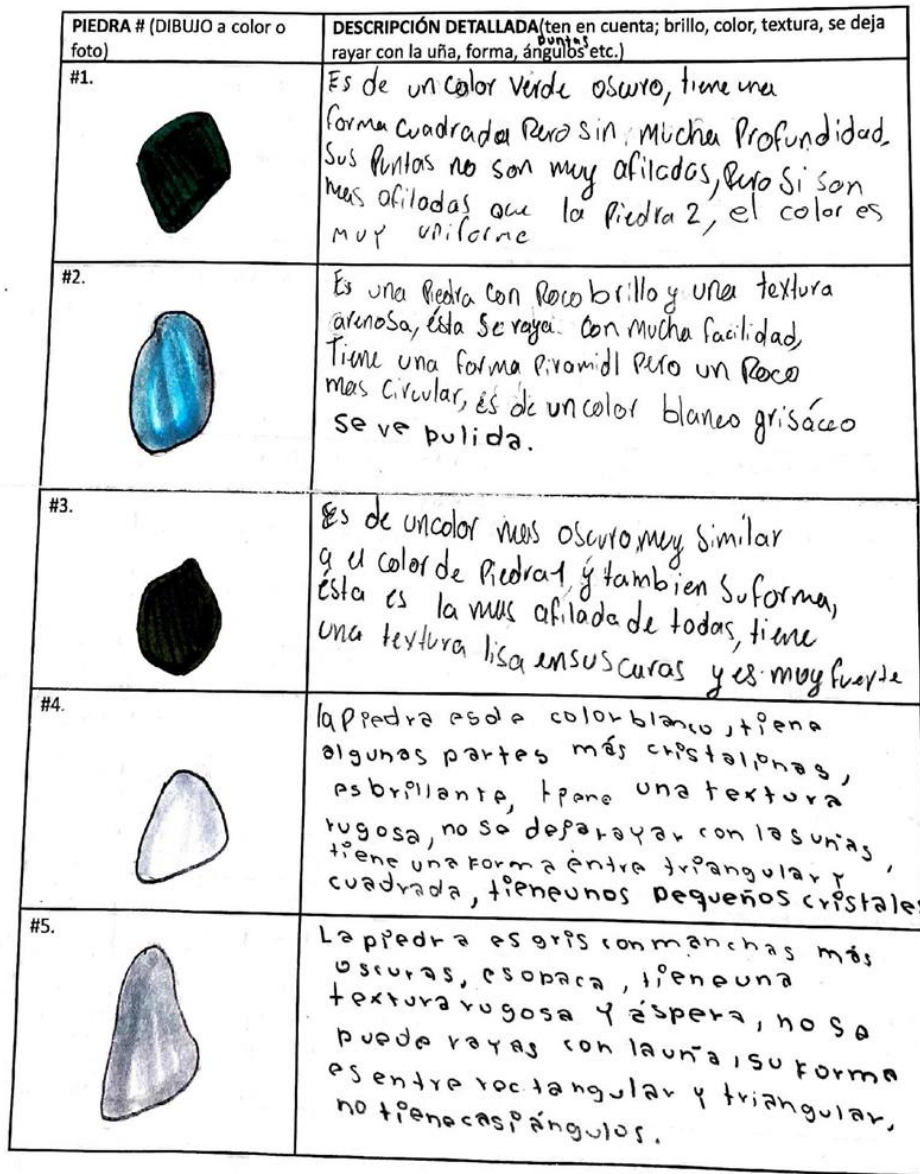 PIEDRA # (DIBUJO a color o
foto)
DESCRIPCIÓN DETALLADA(ten en cuenta; brillo, color, textura, se deja
puntas
rayar con la uña, forma, ángulos etc.)
#1.
Es de un color verde oscuro, tiene una
forma cuadrada Pero sin mucha Profundidad.
Sus Puntas no son muy afiladas, Pero Si son
mas afiladas que la Piedra 2, el color es
muy uniforme
#2.
Es una Piedra con Poco brillo y una textura
arenosa, ésta Se raya con mucha facilidad,
Tiene una forma Piramidl Pero un Poco
mas circular, es de un color blanco grisáceo
se ve pulida.
#3.
Es de un color mas oscuro, muy similar
a el color de Piedra 1, y tambien su forma,
ésta es la mas afilada de todas, tiene
una textura lisa en sus caras y es muy fuerte
#4.
la piedra es de color blanco, tiene
algunas partes más cristalinas,
es brillante, tiene una textura
rugosa, no se deja rayar con las uñas,
tiene una forma entre triangular y
cuadrada, tiene unos pequeños cristales
#5.
La piedra es gris con manchas más
oscuras, es opaca, tiene una
textura rugosa y áspera, no se
puede rayas con la uña, su forma
es entre rectangular y triangular,
no tiene casi ángulos.